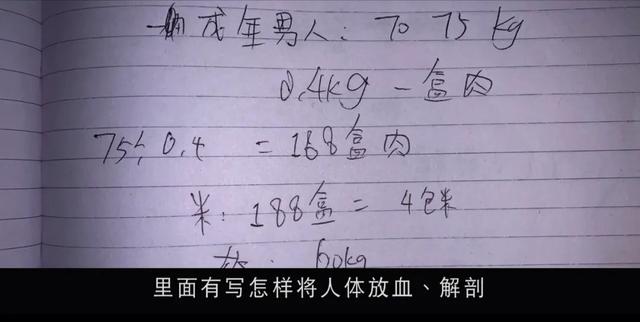 一成年男人: 70 75 kg
0.4kg 一盒肉
75÷0.4 = 168盒肉
米: 188盒 = 4包米
60kg
里面有写怎样将人体放血、解剖